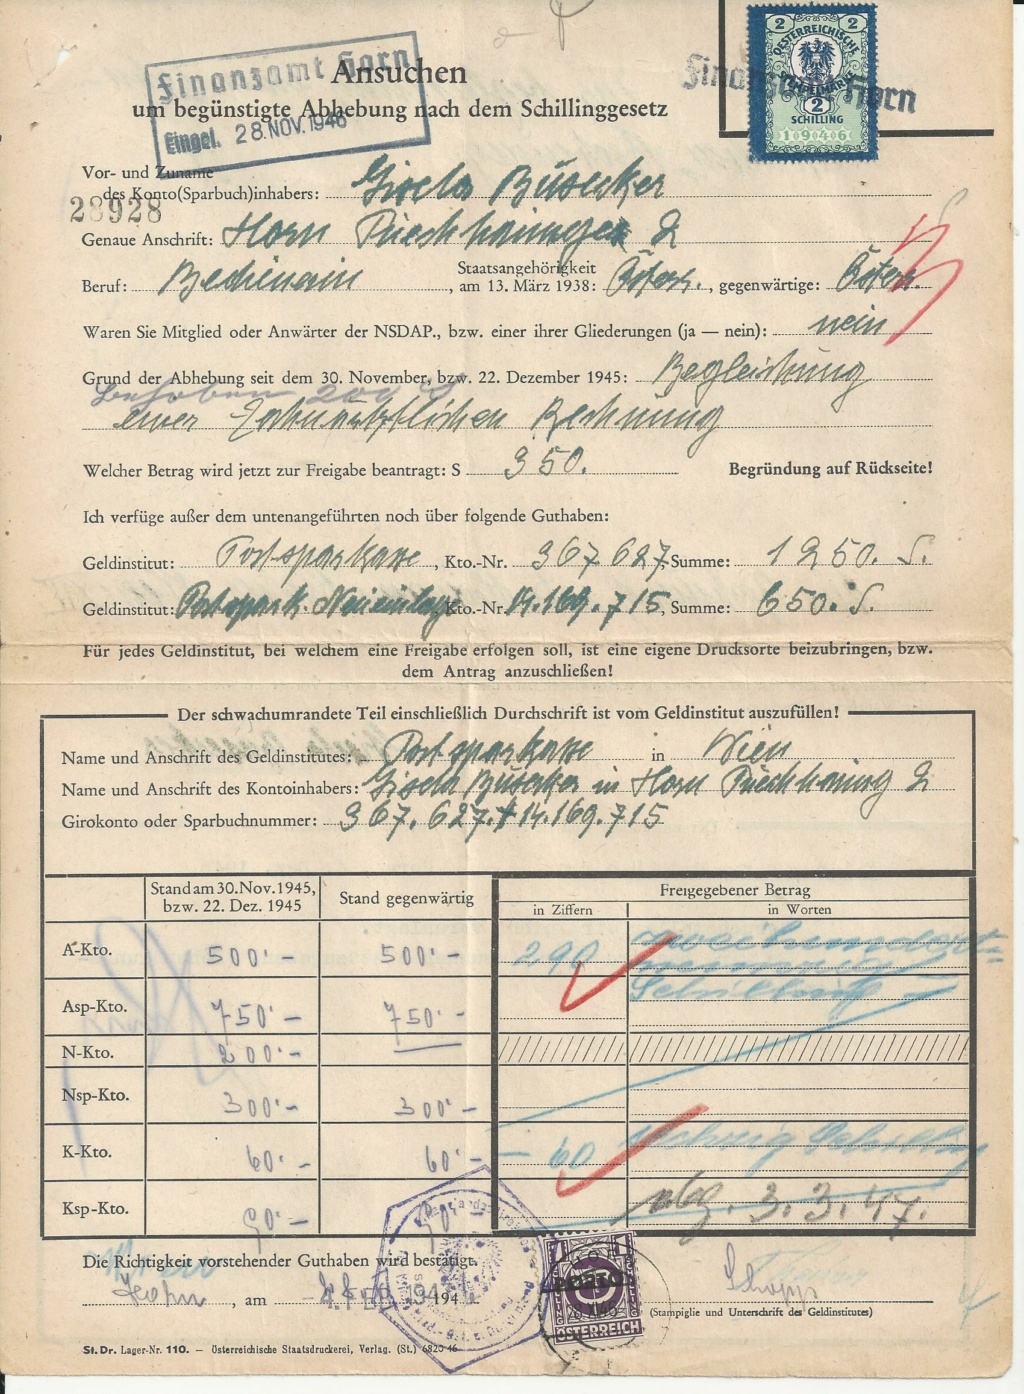 Finanzamt Horn
Eingel. 28. NOV. 1946
Ansuchen
um begünstigte Abhebung nach dem Schillinggesetz
Finanzamt Horn
2 2
ÖSTERREICHISCHE
STEMPELMARKE
2
SCHILLING
1946
Vor- und Zuname
des Konto(Sparbuch)inhabers: Gisela Busecker
28928
Genaue Anschrift: Horn 2
Beruf: Staatsangehörigkeit am 13. März 1938: Österr., gegenwärtige: Österr.
Waren Sie Mitglied oder Anwärter der NSDAP., bzw. einer ihrer Gliederungen (ja — nein): nein
Grund der Abhebung seit dem 30. November, bzw. 22. Dezember 1945: Begleichung
behoben 200 S
einer Zahnärztlichen Rechnung
Welcher Betrag wird jetzt zur Freigabe beantragt: S 350. Begründung auf Rückseite!
Ich verfüge außer dem untenangeführten noch über folgende Guthaben:
Geldinstitut: Postsparkasse, Kto.-Nr. 367627 Summe: 1250. S.
Geldinstitut: Postspark. Neueinlage Kto.-Nr. 14.169.715, Summe: 650. S.
Für jedes Geldinstitut, bei welchem eine Freigabe erfolgen soll, ist eine eigene Drucksorte beizubringen, bzw.
dem Antrag anzuschließen!
Der schwachumrandete Teil einschließlich Durchschrift ist vom Geldinstitut auszufüllen!
Name und Anschrift des Geldinstitutes: Postsparkasse in Wien
Name und Anschrift des Kontoinhabers: Gisela Busecker in Horn 2
Girokonto oder Sparbuchnummer: 367.627. + 14.169.715
Stand am 30. Nov. 1945, bzw. 22. Dez. 1945 Stand gegenwärtig Freigegebener Betrag
in Ziffern in Worten
A-Kto. 500·– 500·– 290 zweihundert-
neunzig
Schilling
Asp-Kto. 750·– 750·–
N-Kto. 200·–
Nsp-Kto. 300·– 300·–
K-Kto. 60·– 60·– – 60 Schilling
Ksp-Kto. 90·– 90·– abg. 3.3.47.
Die Richtigkeit vorstehender Guthaben wird bestätigt.
Horn, am 194
(Stampiglie und Unterschrift des Geldinstitutes)
PORTO
1
ÖSTERREICH
St. Dr. Lager-Nr. 110. — Österreichische Staatsdruckerei, Verlag. (St.) 6820 46